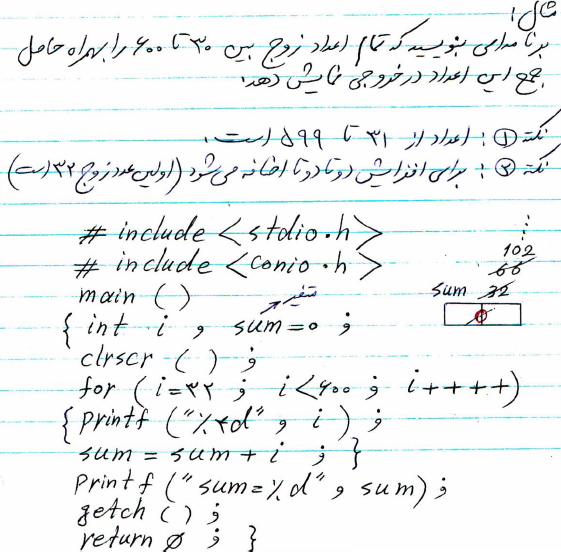 مثال ۱:
برنامه‌ای بنویسید که تمام اعداد زوج بین ۳۰ تا ۶۰۰ را بهمراه حاصل
جمع این اعداد در خروجی نمایش دهد.
نکته ①: اعداد از ۳۱ تا ۵۹۹ است.
نکته ②: برای افزایش دوتا دوتا اضافه می‌شود (اولین عدد زوج ۳۲ است)
# include <stdio.h>
# include <conio.h>
main ()
{ int i , sum=0 ;
متغیر
clrscr ( ) ;
for (i=۳۲ ; i<۶۰۰ ; i++++)
{ printf ("%۴d" , i ) ;
sum = sum + i ; }
printf ("sum=%d" , sum) ;
getch () ;
return 0 ; }
⋮
102
66
sum 32
0